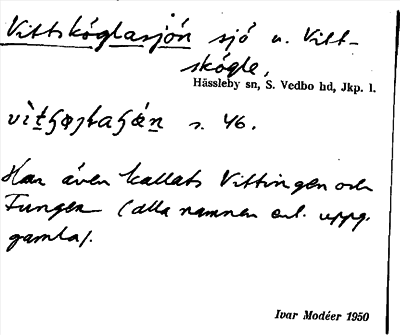 Vittskóglasjón sjö u. Vitt-
skógle,
Hässleby sn, S. Vedbo hd, Jkp. l.
s. 46.
Har även kallats Vittingen och
Fungen (alla namnen enl. uppg.
gamla).
Ivar Modéer 1950